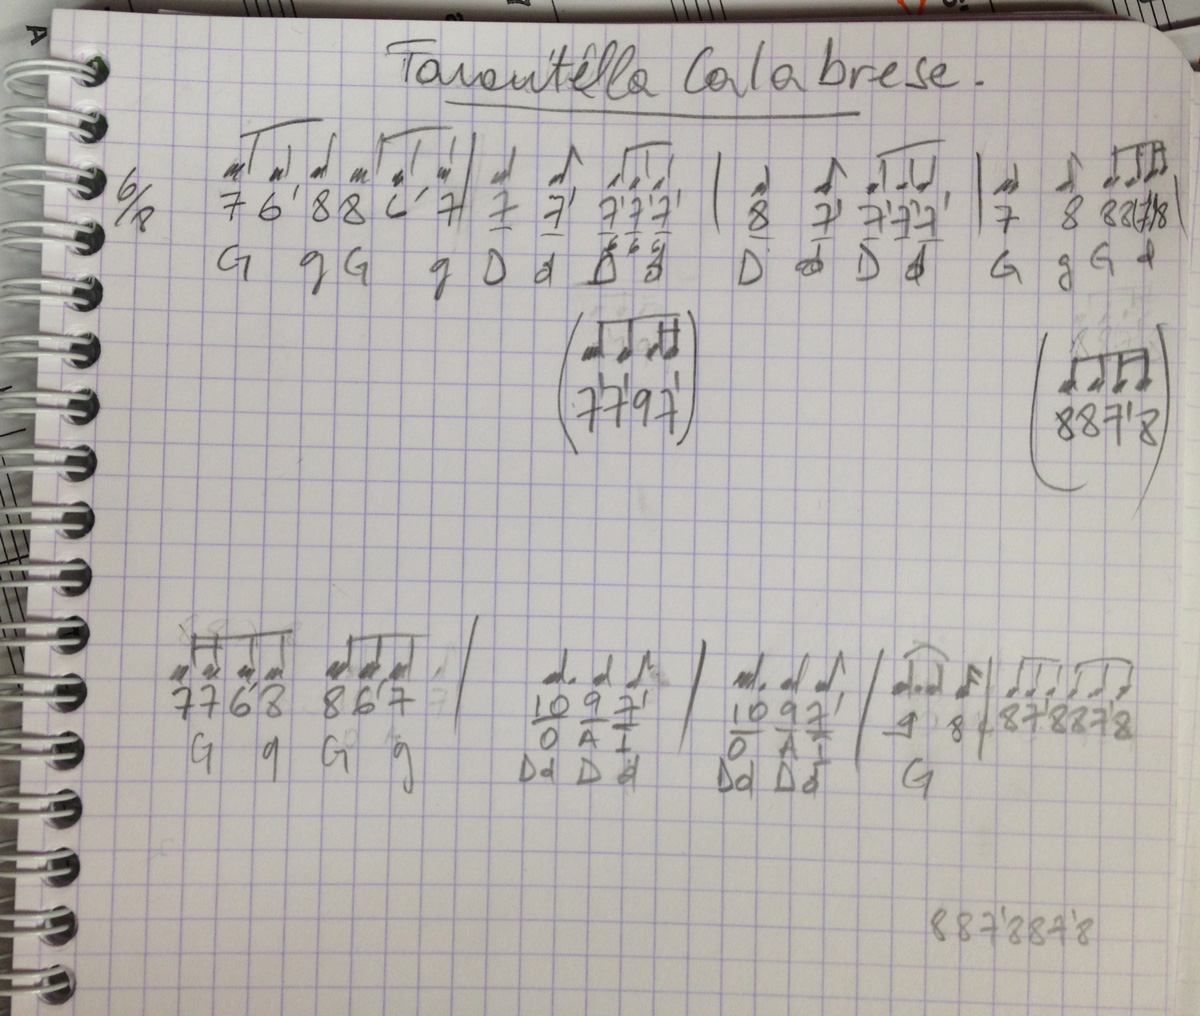 Tarantella Calabrese.
6/8 7 6' 8 8 6' 7 | 7 7' 7' 7' 7' | 8 7' 7' 7' 7' | 7 8 8 8 (7') 8 |
6 6 6
G g G g D d D d D d D d G g G d
(7' 7' 9 7') (8 8 7' 8)
7 7 6' 8 8 6' 7 | 10 9 7' | 10 9 7' | 9 8 | 8 7' 8 8 7' 8
G g G g O A I O A I
Dd D d Dd D d G
8 8 7' 8 8 7' 8